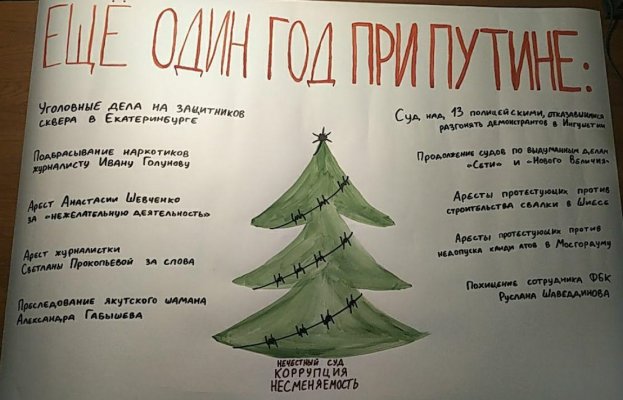 ЕЩЁ ОДИН ГОД ПРИ ПУТИНЕ:
Уголовные дела на защитников
сквера в Екатеринбурге
Подбрасывание наркотиков
журналисту Ивану Голунову
Арест Анастасии Шевченко
за «нежелательную деятельность»
Арест журналистки
Светланы Прокопьевой за слова
Преследование якутского шамана
Александра Габышева
Суд над 13 полицейскими, отказавшимися
разгонять демонстрантов в Ингушетии
Продолжение судов по выдуманным делам
«Сети» и «Нового Величия»
Аресты протестующих против
строительства свалки в Шиесе
Аресты протестующих против
недопуска кандидатов в Мосгордуму
Похищение сотрудника ФБК
Руслана Шаведдинова
НЕЧЕСТНЫЙ СУД
КОРРУПЦИЯ
НЕСМЕНЯЕМОСТЬ